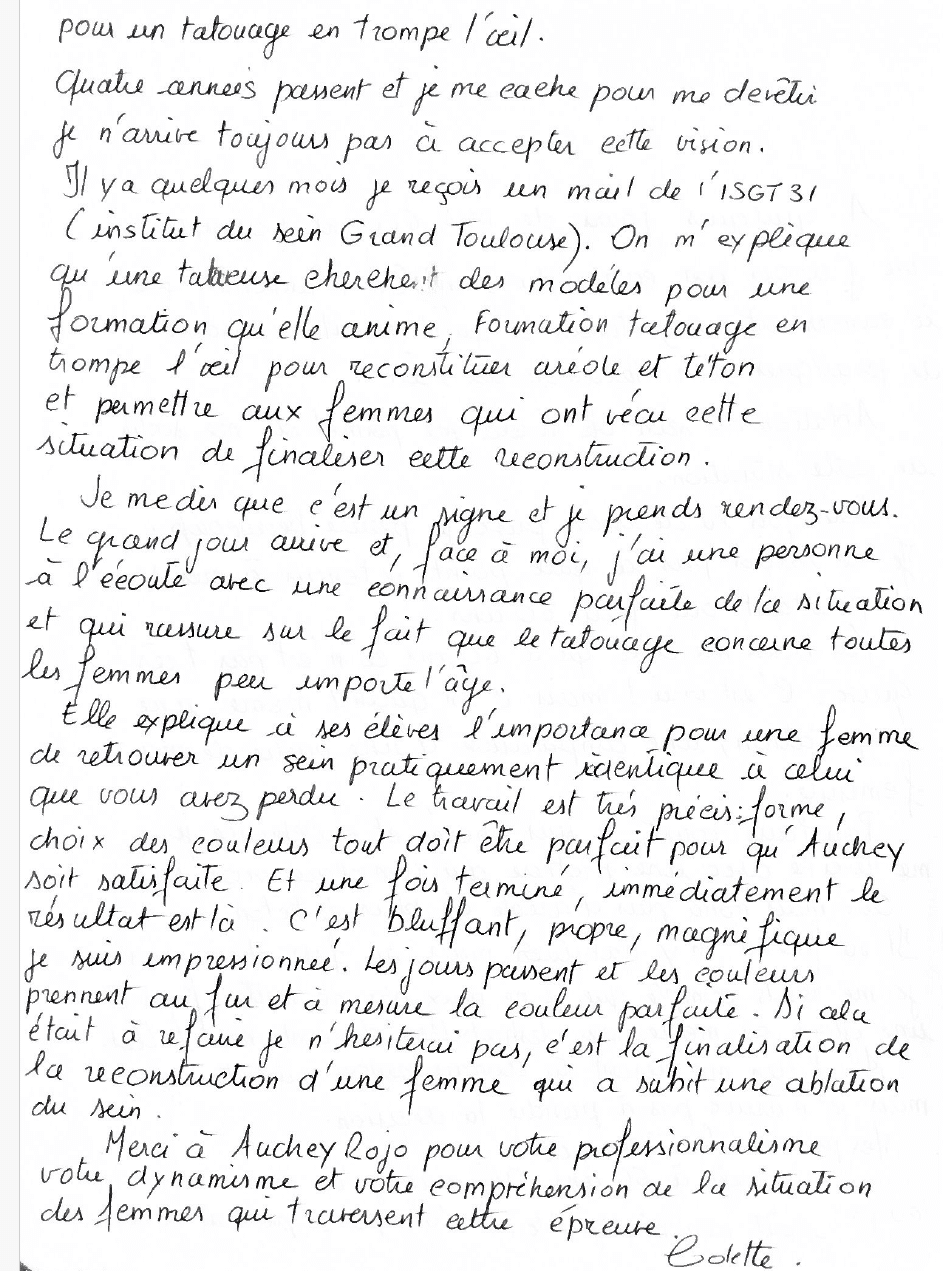 pour un tatouage en trompe l'œil.
Quatre années passent et je me cache pour me devêtir
je n'arrive toujours pas à accepter cette vision.
Il y a quelques mois je reçois un mail de l'ISGT31
(institut du sein Grand Toulouse). On m'explique
qu'une tatoueuse cherchent des modéles pour une
formation qu'elle anime, Formation tatouage en
trompe l'œil pour reconstituer aréole et téton
et permettre aux femmes qui ont vécu cette
situation de finaliser cette reconstruction.
Je me dis que c'est un signe et je prends rendez-vous.
Le grand jour arrive et, face à moi, j'ai une personne
à l'écoute avec une connaissance parfaite de la situation
et qui rassure sur le fait que le tatouage concerne toutes
les femmes peu importe l'âge.
Elle explique à ses élèves l'importance pour une femme
de retrouver un sein pratiquement identique à celui
que vous avez perdu. Le travail est très précis: forme,
choix des couleurs tout doit être parfait pour qu'Auchey
soit satisfaite. Et une fois terminé, immédiatement le
résultat est là. C'est bluffant, propre, magnifique
je suis impressionnée. Les jours passent et les couleurs
prennent au fur et à mesure la couleur parfaite. Si cela
était à refaire je n'hesiterai pas, c'est la finalisation de
la reconstruction d'une femme qui a subit une ablation
du sein.
Merci à Auchey Rojo pour votre professionnalisme
votre dynamisme et votre compréhension de la situation
des femmes qui traversent cette épreuve.
Colette.